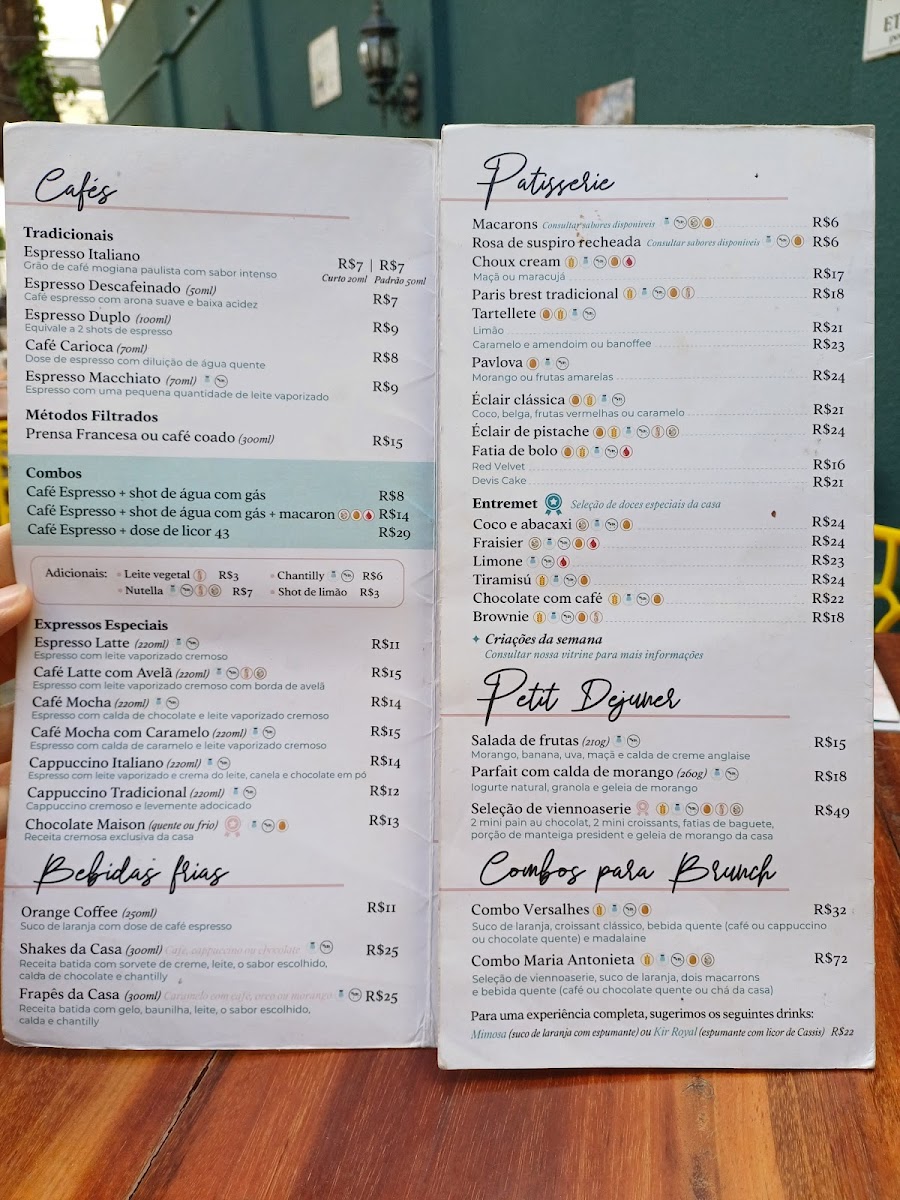 Cafés
Tradicionais
Espresso Italiano
Grão de café mogiana paulista com sabor intenso
R$7 | R$7
Curto 20ml Padrão 50ml
Espresso Descafeinado (50ml)
Café espresso com arona suave e baixa acidez
R$7
Espresso Duplo (100ml)
Equivale a 2 shots de espresso
R$9
Café Carioca (70ml)
Dose de espresso com diluição de água quente
R$8
Espresso Macchiato (70ml)
Espresso com uma pequena quantidade de leite vaporizado
R$9
Métodos Filtrados
Prensa Francesa ou café coado (300ml) R$15
Combos
Café Espresso + shot de água com gás R$8
Café Espresso + shot de água com gás + macaron R$14
Café Espresso + dose de licor 43 R$29
Adicionais: Leite vegetal R$3 Chantilly R$6
Nutella R$7 Shot de limão R$3
Expressos Especiais
Espresso Latte (220ml) R$11
Espresso com leite vaporizado cremoso
Café Latte com Avelã (220ml) R$15
Espresso com leite vaporizado cremoso com borda de avelã
Café Mocha (220ml) R$14
Espresso com calda de chocolate e leite vaporizado cremoso
Café Mocha com Caramelo (220ml) R$15
Espresso com calda de caramelo e leite vaporizado cremoso
Cappuccino Italiano (220ml) R$14
Espresso com leite vaporizado e crema do leite, canela e chocolate em pó
Cappuccino Tradicional (220ml) R$12
Cappuccino cremoso e levemente adocicado
Chocolate Maison (quente ou frio) R$13
Receita cremosa exclusiva da casa
Bebidas frias
Orange Coffee (250ml) R$11
Suco de laranja com dose de café espresso
Shakes da Casa (300ml) Café, cappuccino ou chocolate R$25
Receita batida com sorvete de creme, leite, o sabor escolhido,
calda de chocolate e chantilly
Frapês da Casa (300ml) Caramelo com café, oreo ou morango R$25
Receita batida com gelo, baunilha, leite, o sabor escolhido,
calda e chantilly
Patisserie
Macarons Consultar sabores disponíveis R$6
Rosa de suspiro recheada Consultar sabores disponíveis R$6
Choux cream
Maçã ou maracujá R$17
Paris brest tradicional R$18
Tartellete
Limão R$21
Caramelo e amendoim ou banoffee R$23
Pavlova
Morango ou frutas amarelas R$24
Éclair clássica
Coco, belga, frutas vermelhas ou caramelo R$21
Éclair de pistache R$24
Fatia de bolo
Red Velvet R$16
Devis Cake R$21
Entremet Seleção de doces especiais da casa
Coco e abacaxi R$24
Fraisier R$24
Limone R$23
Tiramisú R$24
Chocolate com café R$22
Brownie R$18
Criações da semana
Consultar nossa vitrine para mais informações
Petit Dejuner
Salada de frutas (210g) R$15
Morango, banana, uva, maçã e calda de creme anglaise
Parfait com calda de morango (260g) R$18
Iogurte natural, granola e geleia de morango
Seleção de viennoaserie R$49
2 mini pain au chocolat, 2 mini croissants, fatias de baguete,
porção de manteiga president e geleia de morango da casa
Combos para Brunch
Combo Versalhes R$32
Suco de laranja, croissant clássico, bebida quente (café ou cappuccino
ou chocolate quente) e madalaine
Combo Maria Antonieta R$72
Seleção de viennoaserie, suco de laranja, dois macarrons
e bebida quente (café ou chocolate quente ou chá da casa)
Para uma experiência completa, sugerimos os seguintes drinks:
Mimosa (suco de laranja com espumante) ou Kir Royal (espumante com licor de Cassis) R$22